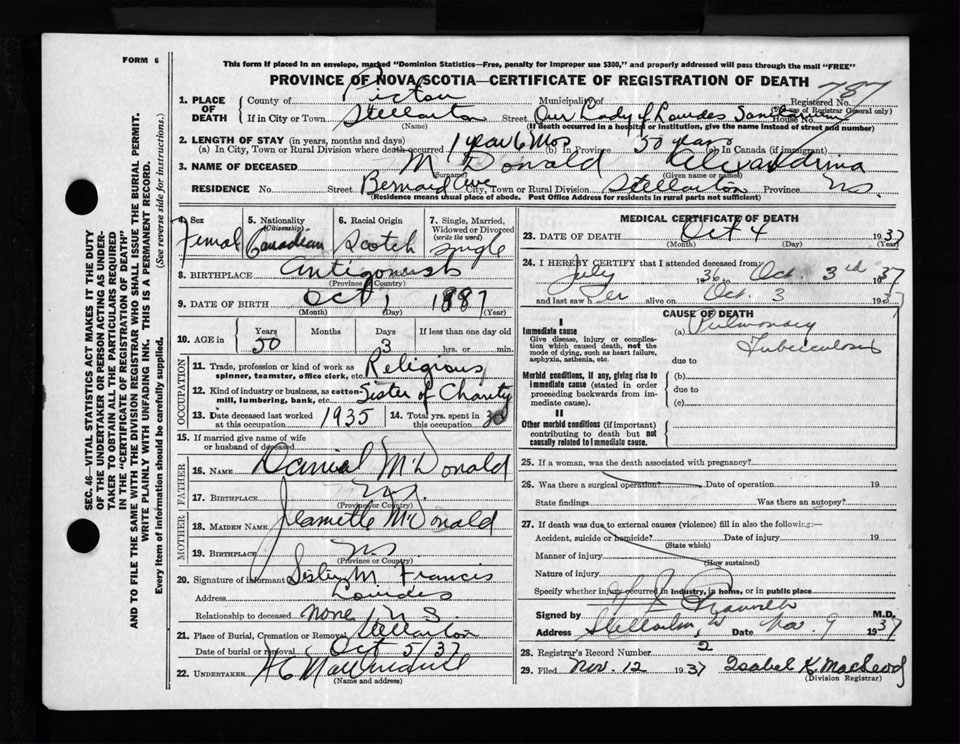 FORM 6
This form if placed in an envelope, marked "Dominion Statistics—Free, penalty for improper use $300," and properly addressed will pass through the mail "FREE"
PROVINCE OF NOVA SCOTIA—CERTIFICATE OF REGISTRATION OF DEATH
787
1. PLACE OF DEATH
County of Pictou Municipality of Registered No. (For use of Registrar General only)
If in City or Town Stellarton (Name) Street Our Lady of Lourdes House No.
(If death occurred in a hospital or institution, give the name instead of street and number)
2. LENGTH OF STAY (in years, months and days)
(a) In City, Town or Rural Division where death occurred 1 year 6 Mos (b) In Province 50 years (c) In Canada (if immigrant)
3. NAME OF DECEASED McDonald (Surname) Alexandrina (Given name or names)
RESIDENCE No. Street Bernard Ave City, Town or Rural Division Stellarton Province NS
(Residence means usual place of abode. Post Office Address for residents in rural parts not sufficient)
4. Sex Femal
5. Nationality (Citizenship) Canadian
6. Racial Origin Scotch
7. Single, Married, Widowed or Divorced (write the word) Single
8. BIRTHPLACE Antigonish
(Province or Country)
9. DATE OF BIRTH Oct 1 1887
(Month) (Day) (Year)
10. AGE in Years 50 Months Days 3 If less than one day old hrs. or min.
OCCUPATION
11. Trade, profession or kind of work as spinner, teamster, office clerk, etc. Religious
12. Kind of industry or business, as cotton-mill, lumbering, bank, etc. Sister of Charity
13. Date deceased last worked at this occupation 1935
14. Total yrs. spent in this occupation
15. If married give name of wife or husband of deceased
FATHER
16. NAME Danial McDonald
17. BIRTHPLACE NS
(Province or Country)
MOTHER
18. MAIDEN NAME Jeanette McDonald
19. BIRTHPLACE NS
(Province or Country)
20. Signature of informant Sister M. Francis
Address Lourdes
Relationship to deceased none NS
21. Place of Burial, Cremation or Removal Stellarton
Date of burial or removal Oct 5/37
22. UNDERTAKER
(Name and address)
MEDICAL CERTIFICATE OF DEATH
23. DATE OF DEATH Oct 4 1937
(Month) (Day) (Year)
24. I HEREBY CERTIFY that I attended deceased from:
July 1936 to Oct 3rd 1937
and last saw her alive on Oct. 3 1937
CAUSE OF DEATH
I
Immediate cause (a) Pulmonary
Give disease, injury or complication which caused death, not the mode of dying, such as heart failure, asphyxia, asthenia, etc.
Tuberculosis
due to
Morbid conditions, if any, giving rise to immediate cause (stated in order proceeding backwards from immediate cause).
(b)
due to
(c)
II
Other morbid conditions (if important) contributing to death but not causally related to immediate cause.
25. If a woman, was the death associated with pregnancy?
26. Was there a surgical operation? Date of operation 19
State findings Was there an autopsy?
27. If death was due to external causes (violence) fill in also the following:—
Accident, suicide or homicide? Date of injury 19
(State which)
Manner of injury
(How sustained)
Nature of injury
Specify whether injury occurred in industry, in home, or in public place
Signed by M.D.
Address Stellarton Date Nov 9 1937
28. Registrar's Record Number 2
29. Filed Nov. 12 1937 Isabel K. MacLeod
(Division Registrar)
SEC. 46—VITAL STATISTICS ACT MAKES IT THE DUTY
OF THE UNDERTAKER OR PERSON ACTING AS UNDER-
TAKER TO OBTAIN ALL THE PARTICULARS REQUIRED
IN THE "CERTIFICATE OF REGISTRATION OF DEATH"
AND TO FILE THE SAME WITH THE DIVISION REGISTRAR WHO SHALL ISSUE THE BURIAL PERMIT.
WRITE PLAINLY WITH UNFADING INK. THIS IS A PERMANENT RECORD.
Every item of information should be carefully supplied. (See reverse side for instructions.)